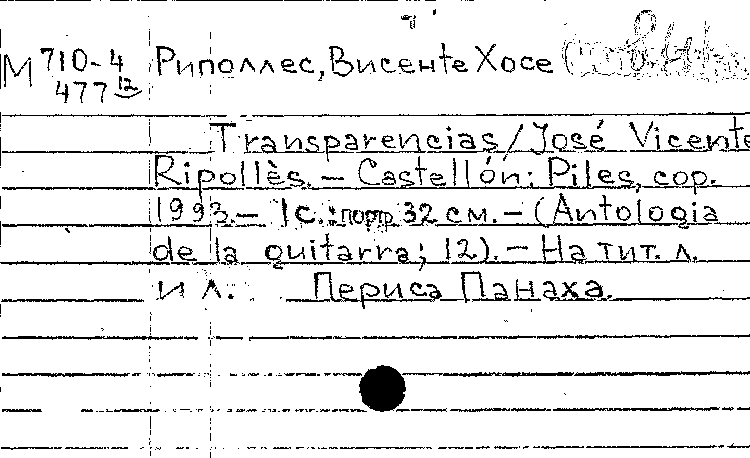 М 710-4 Риполлес, Висенте Хосе
477 12
Transparencias / José Vicente
Ripollès. – Castellón: Piles, cop.
1993. – 1с.: портр. 32 см. – (Antologia
de la guitarra; 12). – На тит. л.
и л. Периса Панаха.